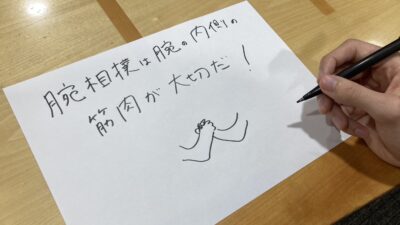 腕相撲は腕の内側の
筋肉が大切だ!